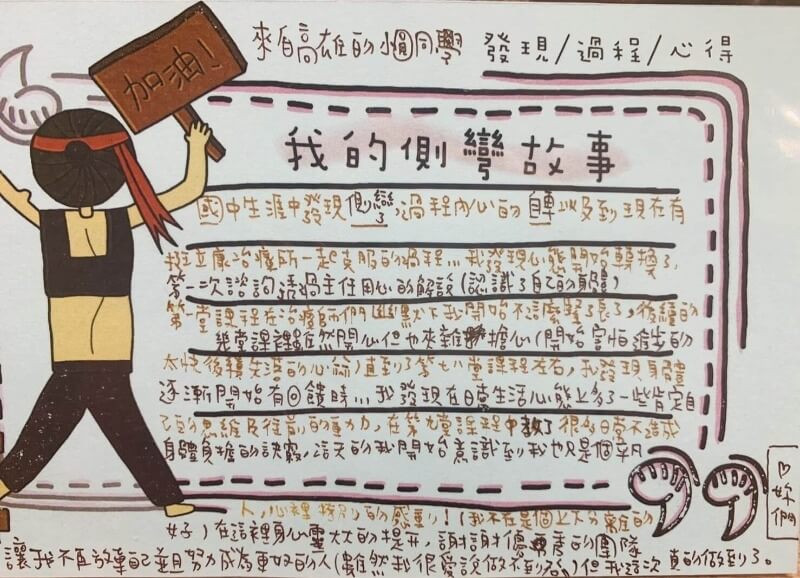 加油!
來自高雄的小圓同學
發現/過程/心得
我的側彎故事
國中生涯中發現側彎了過程內心的自卑以及到現在有
挺立康治療所一起克服的過程...我發現心態開始轉換了,
第一次諮詢透過主任用心的解說(認識了自己的身體)
第一堂課程在治療師們幽默下我開始不這麼緊張了,後續的
幾堂課裡雖然開心但也來雜擔心(開始害怕進步的
太快後續失落的心),直到了第七八堂課程左右,我發現身體
逐漸開始有回饋時...我發現在日常生活心態上多了一些肯定自
己的思維及往前的動力,在第九堂課程中教了很多日常不造成
身體負擔的訣竅,這天的我開始意識到我也只是個平凡
人,心裡特別的感動!(我不在是個上天分棄的
女子)在這裡身心靈大大的提升,謝謝優秀的團隊
讓我不再放棄自己並且努力成為更好的人(雖然我很愛說做不到)但我這次真的做到了。
♡妳們